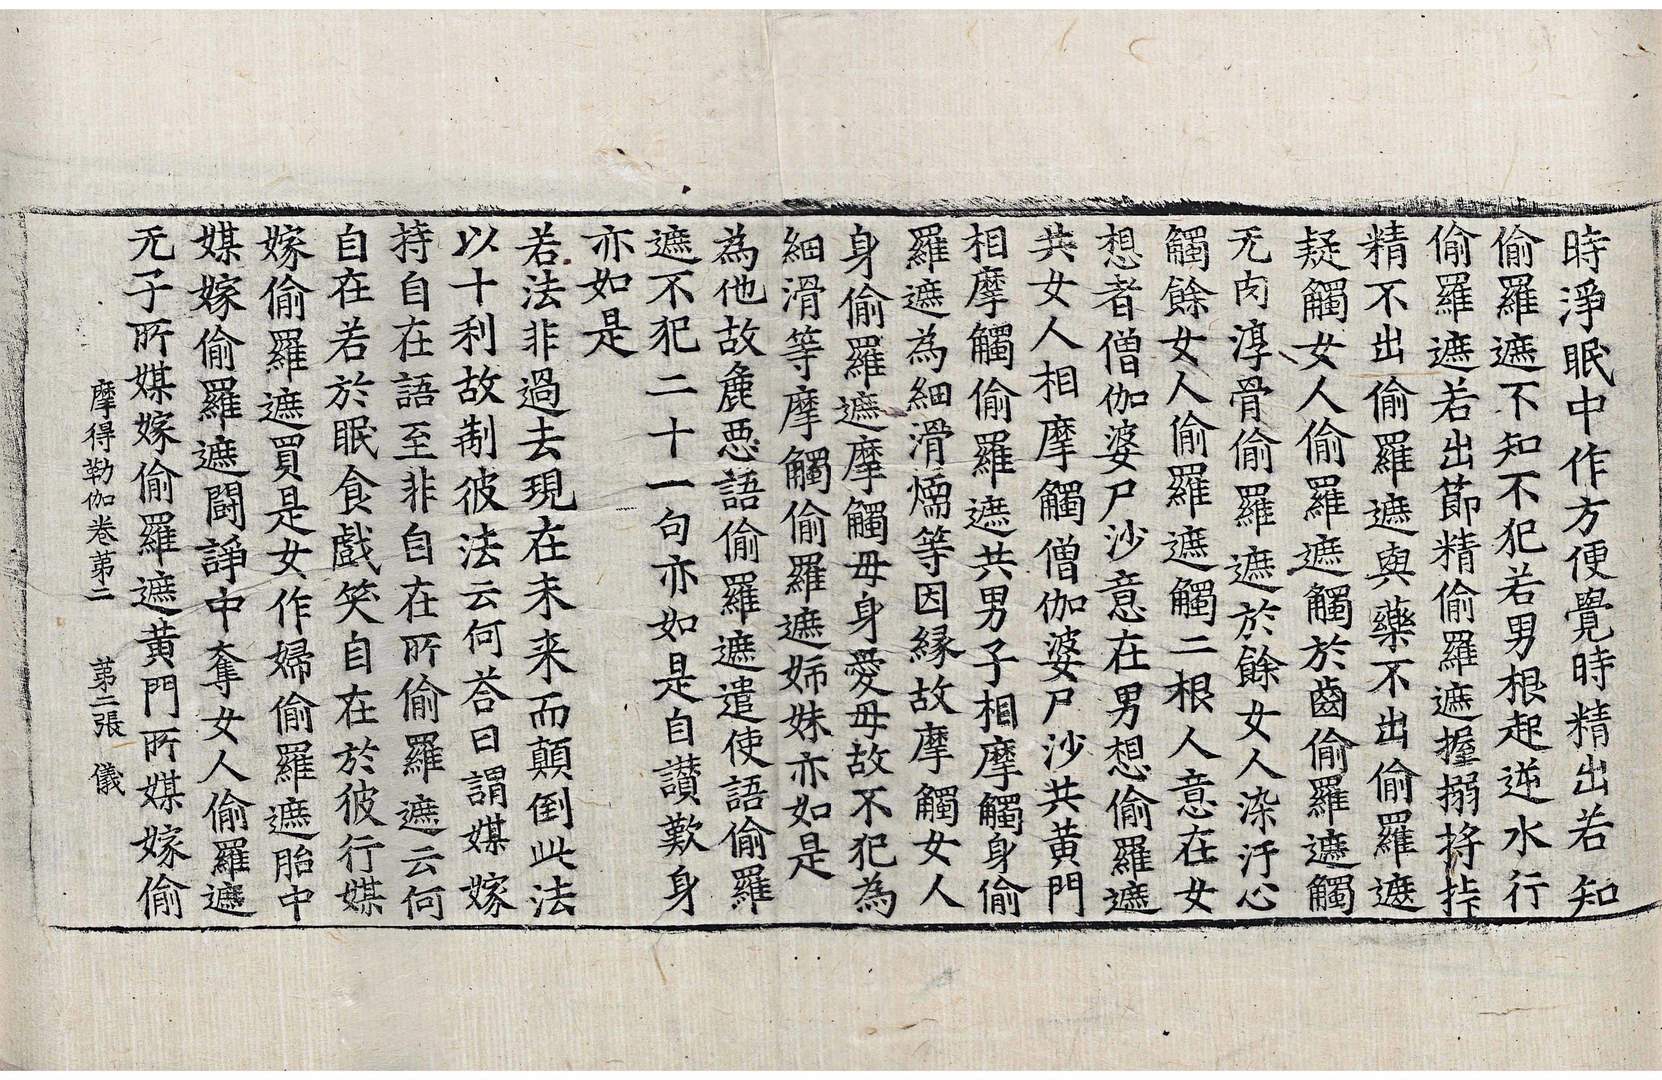 時淨眠中作方便覺時精出若知
偷羅遮不知不犯若男根起逆水行
偷羅遮若出節精偷羅遮握搦捋㧊
精不出偷羅遮與藥不出偷羅遮
疑觸女人偷羅遮觸於齒偷羅遮觸
无肉淳骨偷羅遮於餘女人染汙心
觸餘女人偷羅遮觸二根人意在女
想者僧伽婆尸沙意在男想偷羅遮
共女人相摩觸僧伽婆尸沙共黃門
相摩觸偷羅遮共男子相摩觸身偷
羅遮為細滑煗等因緣故摩觸女人
身偷羅遮摩觸母身愛母故不犯為
細滑等摩觸偷羅遮姉妹亦如是
為他故麁惡語偷羅遮遣使語偷羅
遮不犯二十一句亦如是自讃歎身
亦如是
若法非過去現在未来而顛倒此法
以十利故制彼法云何荅曰謂媒嫁
持自在語至非自在所偷羅遮云何
自在若於眠食戲笑自在於彼行媒
嫁偷羅遮買是女作婦偷羅遮胎中
媒嫁偷羅遮鬪諍中奪女人偷羅遮
无子所媒嫁偷羅遮黃門所媒嫁偷
摩得勒伽卷苐二 苐二張 儀